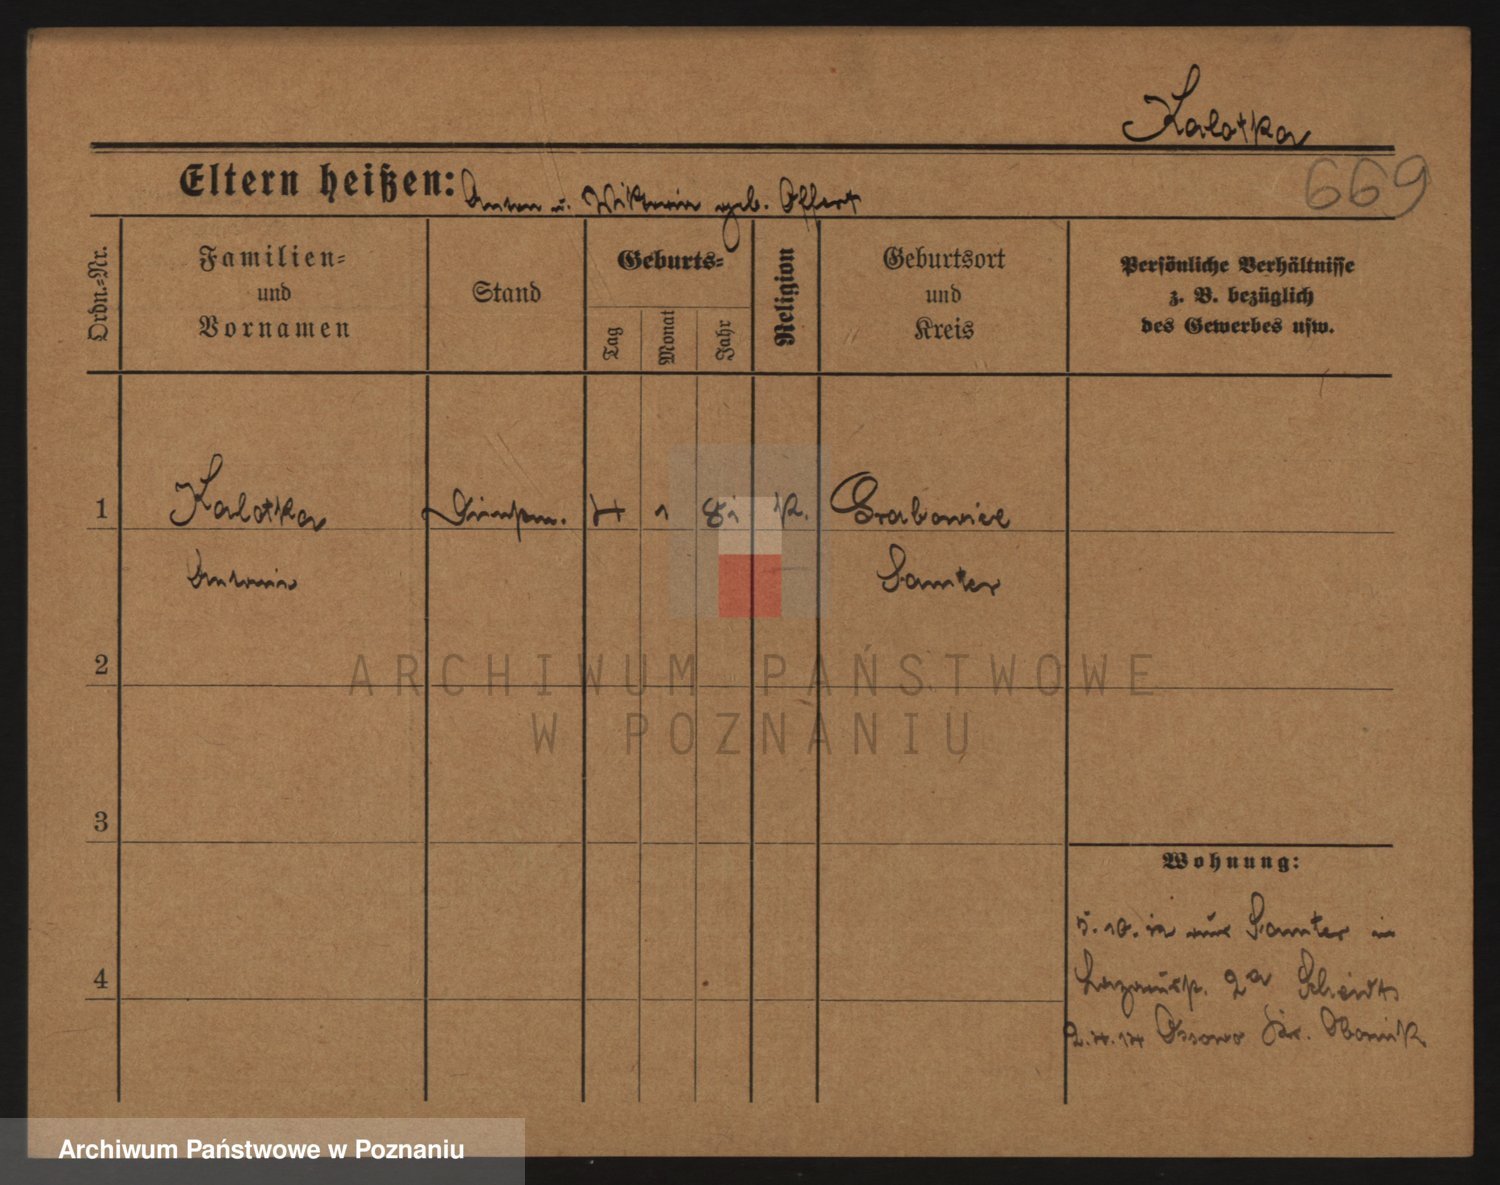 Kalotka
669
Eltern heißen: Anton u. Wiktoria geb. Offert
Ordn.-Nr.
Familien-
und
Vornamen
Stand
Geburts-
Tag
Monat
Jahr
Religion
Geburtsort
und
Kreis
Persönliche Verhältnisse
z. B. bezüglich
des Gewerbes usw.
1 Kalotka Dienstm. 4 1 81 K. Grabowiec
Antonin Samter
2
ARCHIWUM PAŃSTWOWE
W POZNANIU
3
Wohnung:
5. 10. 12 aus Samter in
2a
4
2. 4. 14 Ossowo Kr. Obornik
Archiwum Państwowe w Poznaniu